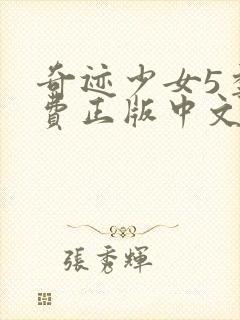 奇迹少女5
費正版中文
張秀輝